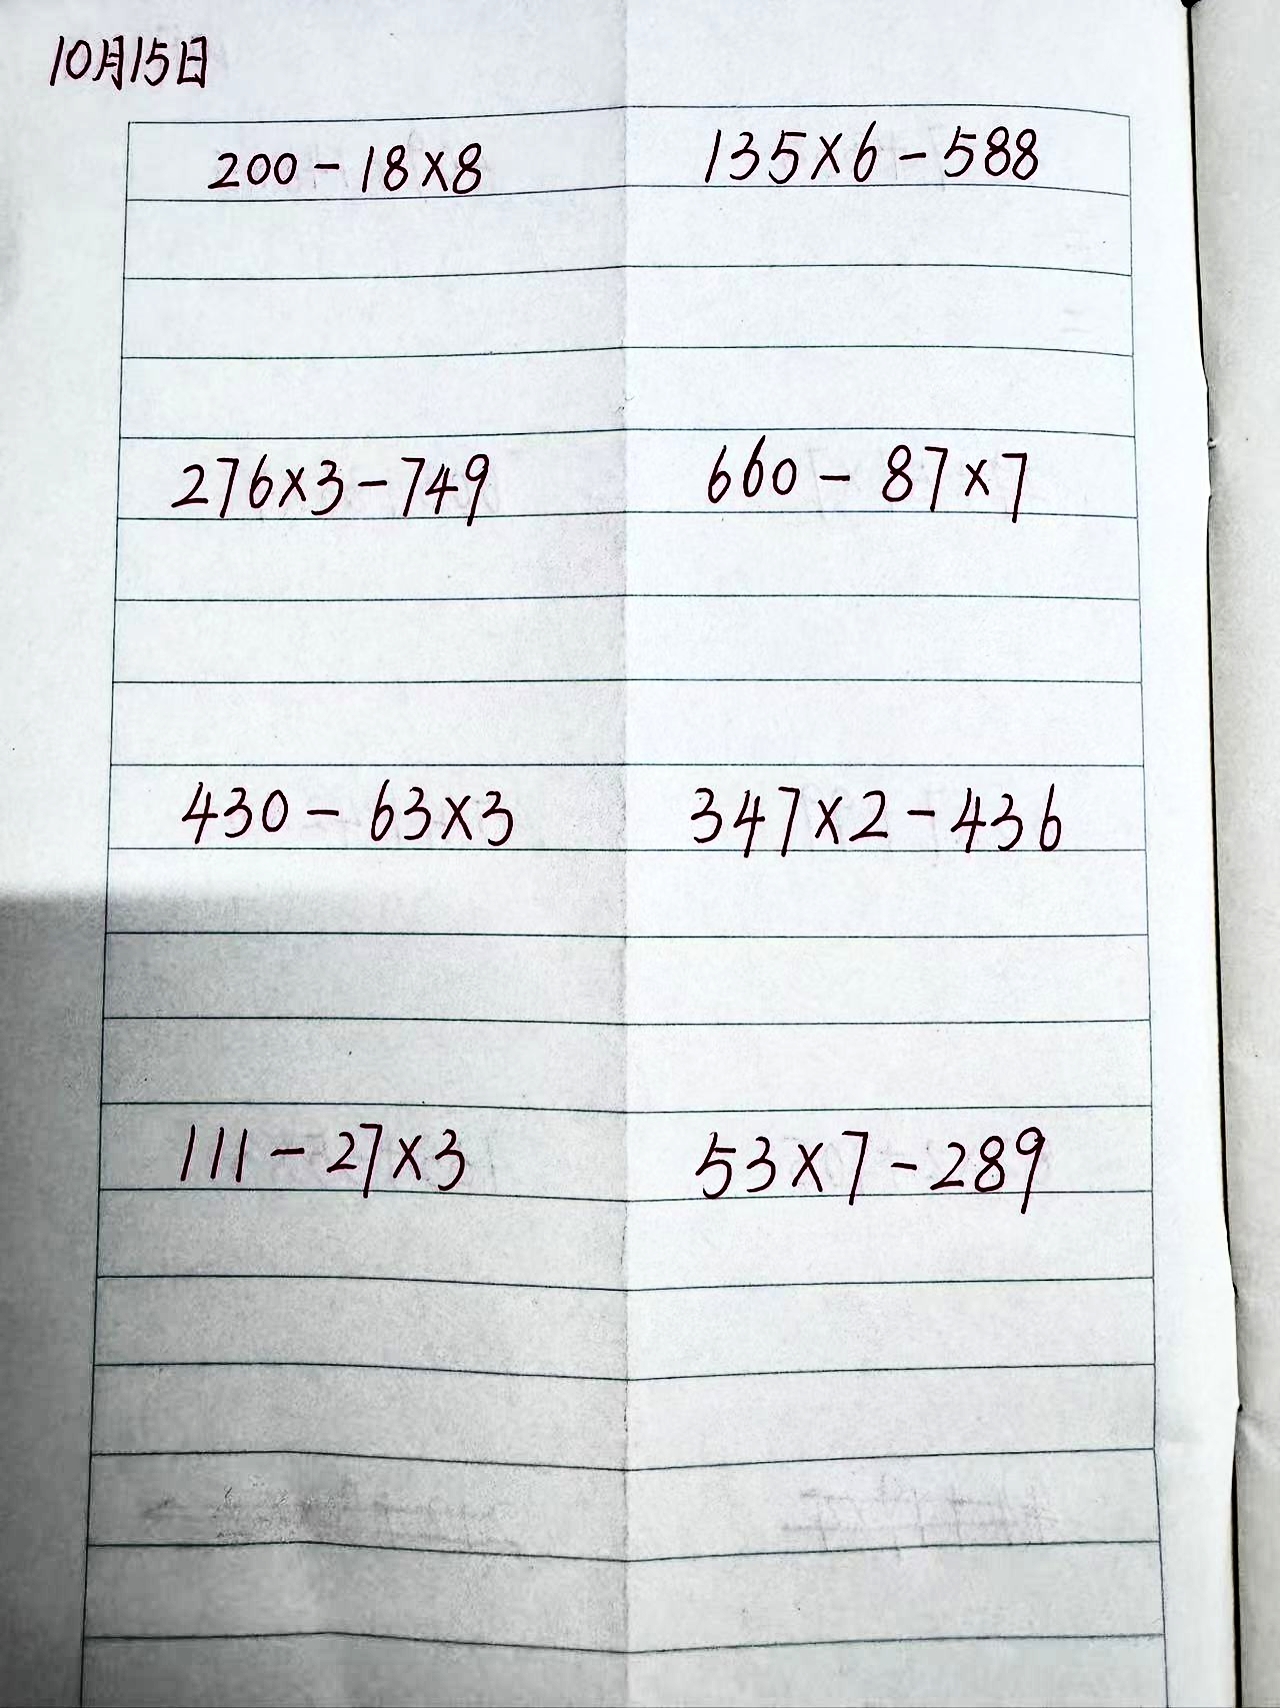 10月15日
200-18×8 135×6-588
276×3-749 660-87×7
430-63×3 347×2-436
111-27×3 53×7-289